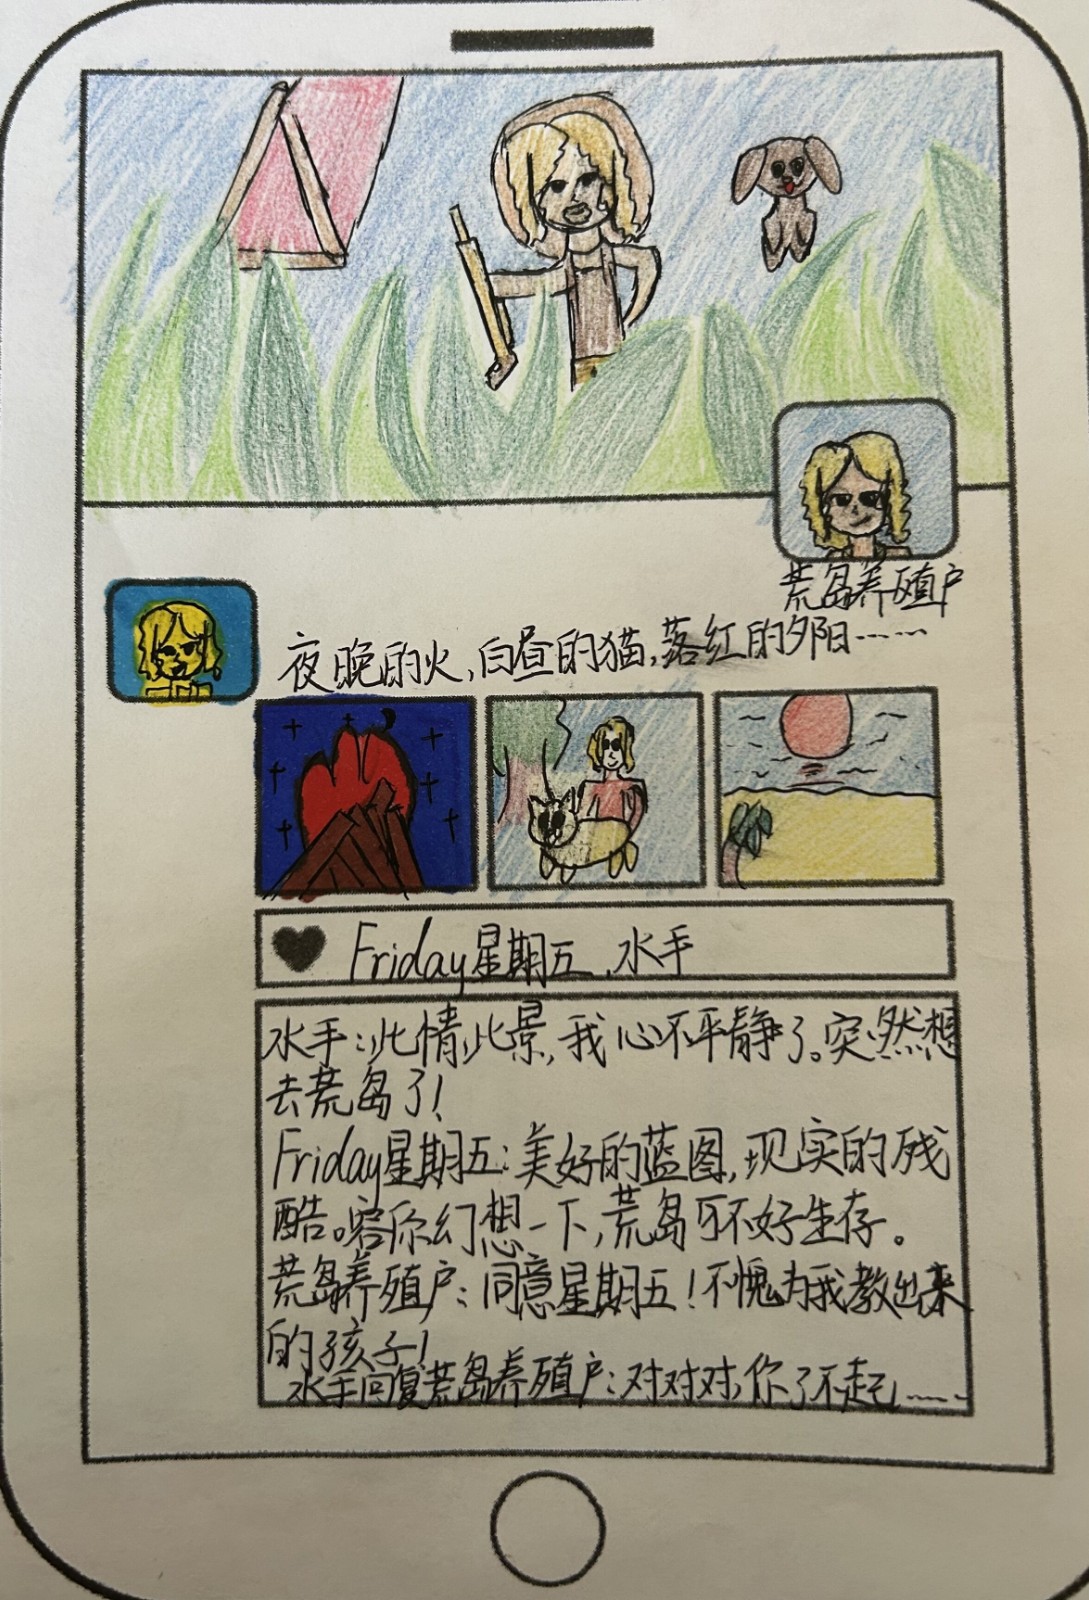 荒岛养殖户
夜晚的火,白昼的猫,落红的夕阳……
Friday星期五、水手
水手:此情此景,我心不平静了。突然想
去荒岛了!
Friday星期五:美好的蓝图,现实的残
酷。容你幻想一下,荒岛可不好生存。
荒岛养殖户:同意星期五!不愧为我教出来
的孩子!
水手回复荒岛养殖户:对对对,你了不起……